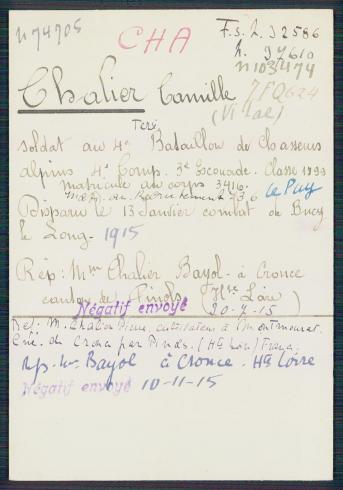 n 74705
CHA
F.s.2.32586
h. 37610
n 103474
7FQ624
Chalier Camille
(Vital)
Terr
Soldat au 4e Bataillon de Chasseurs
alpins 4e Comp. 3e Escouade. Classe 1899
matricule au corps 3416.
mat. du Recrutement 736 Le Puy
Disparu le 13 Janvier combat de Bucy
le Long. 1915
Rép: Mme Chalier Bayol - à Cronce
canton de Pinols (Hte Loire)
Négatif envoyé 20-7-15
Def. M. Chalier Pierre cultivateur à Montmourat.
Cne. de Cronce par Pinols. (Hte Loire) France.
Rp. Mme Bayol à Cronce. Hte Loire
Négatif envoyé 10-11-15